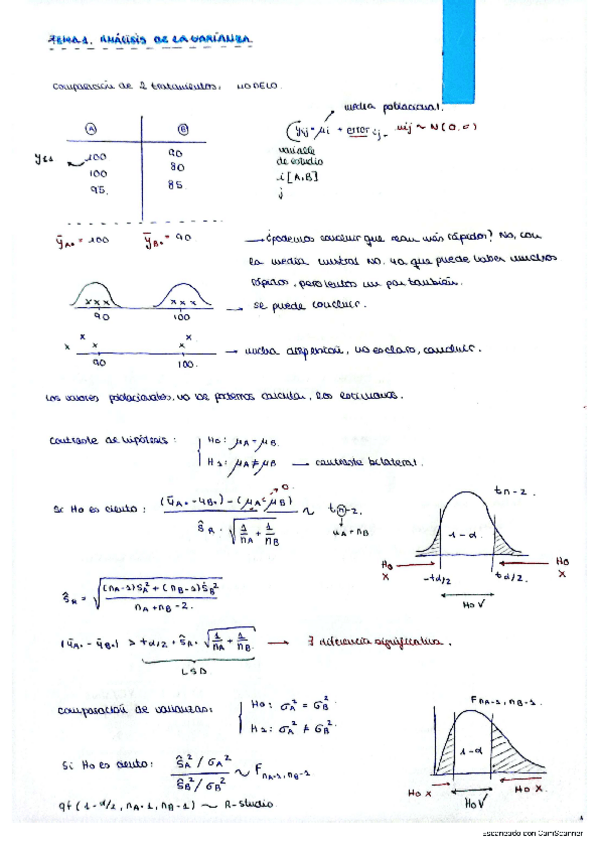 TEMA 1. ANÁLISIS DE LA VARIANZA.
comparación de 2 tratamientos. MODELO.
media poblacional.
yij = μi + error ij. uij ~ N(0, σ)
variable de estudio
i [A,B]
j
A B
100 90
100 80
95. 85
ȳA• = 100 ȳB• = 90
→ ¿podemos concluir que sean más rápidos? No, con
la media muestral no. ya que puede haber muchos
rápidos, pero lentos un par también.
xxx xxx
90 100
→ se puede concluir.
x x x x x
90 100.
→ mucha dispersión, no es claro, concluir.
Los valores poblacionales, no los podemos calcular, los estimamos.
contraste de hipótesis: H0: μA = μB.
H1: μA ≠ μB → contraste bilateral.
Si H0 es cierto: (ȳA• - ȳB•) - (μA - μB) 0. / ŝR · √(1/nA + 1/nB) ~ t n-2.
nA + nB
tn-2.
1-α
H0 X -tα/2 tα/2. H0 X
H0 √
ŝR = √((nA-1)ŝA² + (nB-1)ŝB² / nA + nB - 2.)
|ȳA• - ȳB•| > tα/2 · ŝR · √(1/nA + 1/nB) → ∃ diferencia significativa.
LSD
comparación de varianzas: H0: σA² = σB².
H1: σA² ≠ σB².
Si H0 es cierto: ŝA² / σA² / ŝB² / σB² ~ F nA-1, nB-1
qf(1-α/2, nA-1, nB-1) ~ R-studio
F nA-1, nB-1.
1-α
H0 X H0 √ H0 X.
Escaneado con CamScanner